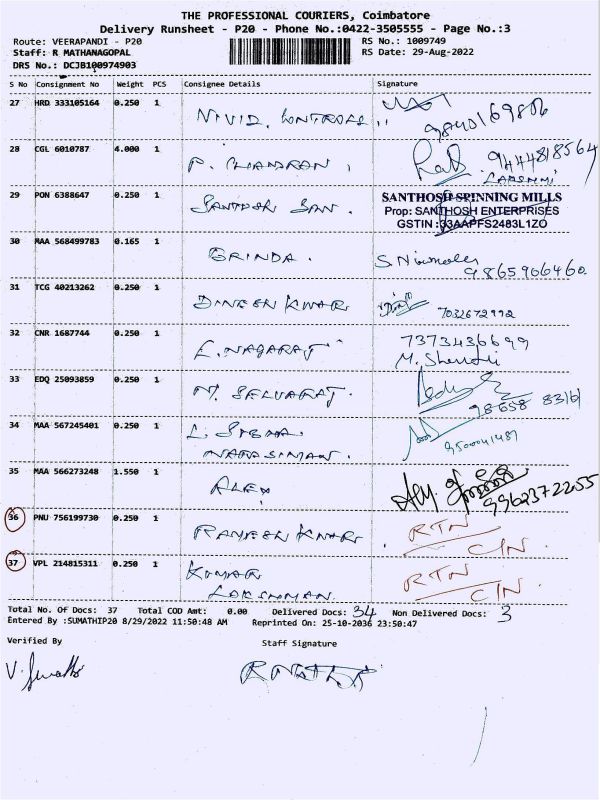 THE PROFESSIONAL COURIERS, Coimbatore
Delivery Runsheet - P20 - Phone No.:0422-3505555 - Page No.:3
Route: VEERAPANDI - P20 RS No.: 1009749
Staff: R MATHANAGOPAL RS Date: 29-Aug-2022
DRS No.: DCJB100974903
S No Consignment No Weight PCS Consignee Details Signature
27 HRD 333105164 0.250 1 NIVID. CONTROLS 9840169806
28 CGL 6010787 4.000 1 P. CHANDRAN 9444818564
LAKSHMI
29 PON 6388647 0.250 1 SANTHOSH SPINNING MILLS
Prop: SANTHOSH ENTERPRISES
GSTIN :33AAPFS2483L1ZO
30 MAA 568499783 0.165 1 GRINDA. S. Nirmala
9865906460
31 TCG 40213262 0.250 1 DINESH KUMAR 7032672992
32 CNR 1687744 0.250 1 E. NAGARAJ 7373436699
33 EDQ 25093859 0.250 1 N. SELVARAJ. 98658 83161
34 MAA 567245401 0.250 1 L.
NARASIMAN. 9500041489
35 MAA 566273248 1.550 1 ALEX 9962372255
36 PNU 756199730 0.250 1 KUMAR. RTN
C/N
37 VPL 214815311 0.250 1 KUMAR RTN
LAKSHMAN. C/N.
Total No. Of Docs: 37 Total COD Amt: 0.00 Delivered Docs: 34 Non Delivered Docs: 3
Entered By :SUMATHIP20 8/29/2022 11:50:48 AM Reprinted On: 25-10-2036 23:50:47
Verified By Staff Signature